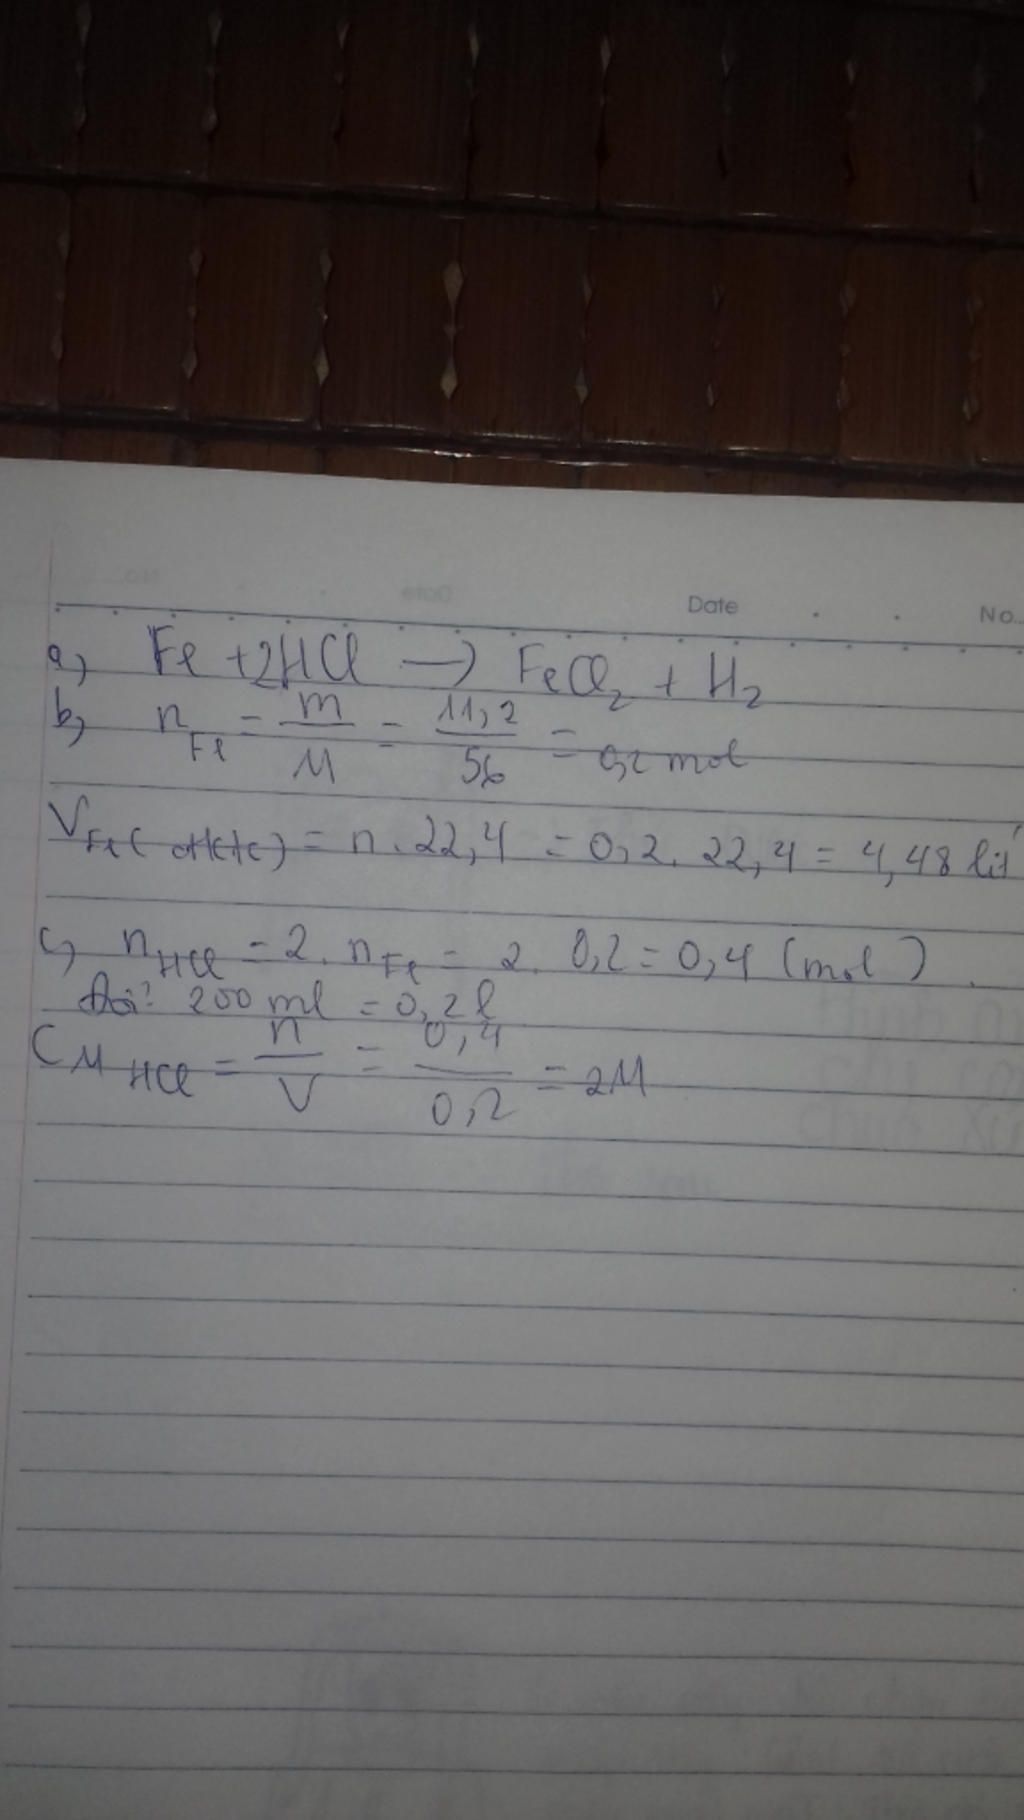 Date No.
a) Fe + 2HCl → FeCl₂ + H₂
b) n Fe = m/M = 11,2/56 = 0,2 mol
V Fe (đktc) = n . 22,4 = 0,2 . 22,4 = 4,48 lít
c) n HCl = 2 . n Fe = 2 . 0,2 = 0,4 (mol)
Đổi: 200 ml = 0,2 l
C M HCl = n/V = 0,4/0,2 = 2M